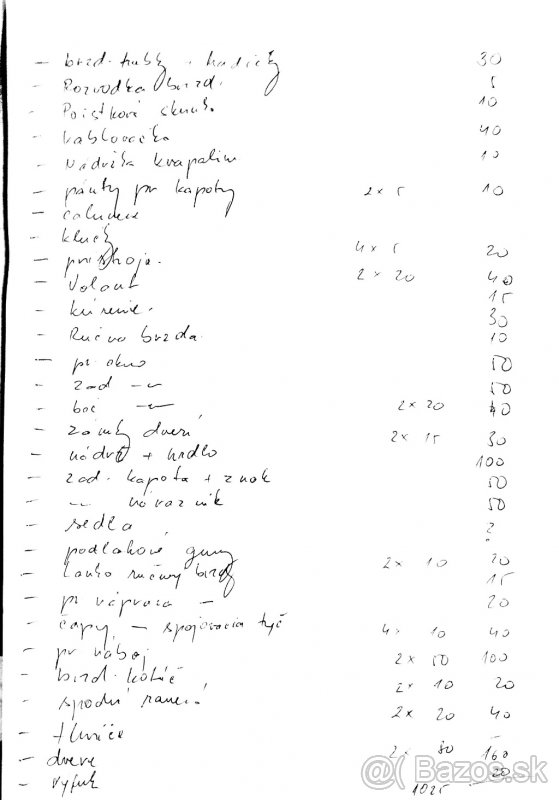 - brzd. trubky + hadičky 30
- Rozvodka brzd. 5
- Poistková skrinka 10
- kablovačka 40
- Nádržka kvapalin 10
- pánty pr kapoty 2x5 10
- čalunenie
- kľučky 4x5 20
- pr. 2x20 40
- Volant 15
- kúrenie. 30
- Ručná brzda 10
- pr okno 50
- zad -〃- 50
- boč -〃- 2x20 40
- zámky dverí 2x15 30
- nádrž + hrdlo 100
- zad. kapota + znak 50
- -〃- nárazník 50
- sedlá ?
- podlahové gumy 2x10 20
- Lanko ručnej brzdy 15
- pr náprava - 20
- čapy - spojovacia tyč 4x10 40
- pr náboj 2x50 100
- brzd. kotúč 2x10 20
- spodné ramená 2x20 40
- tlmiče
- dvere 2x80 160
- výfuk 20
1025
Bazos.sk